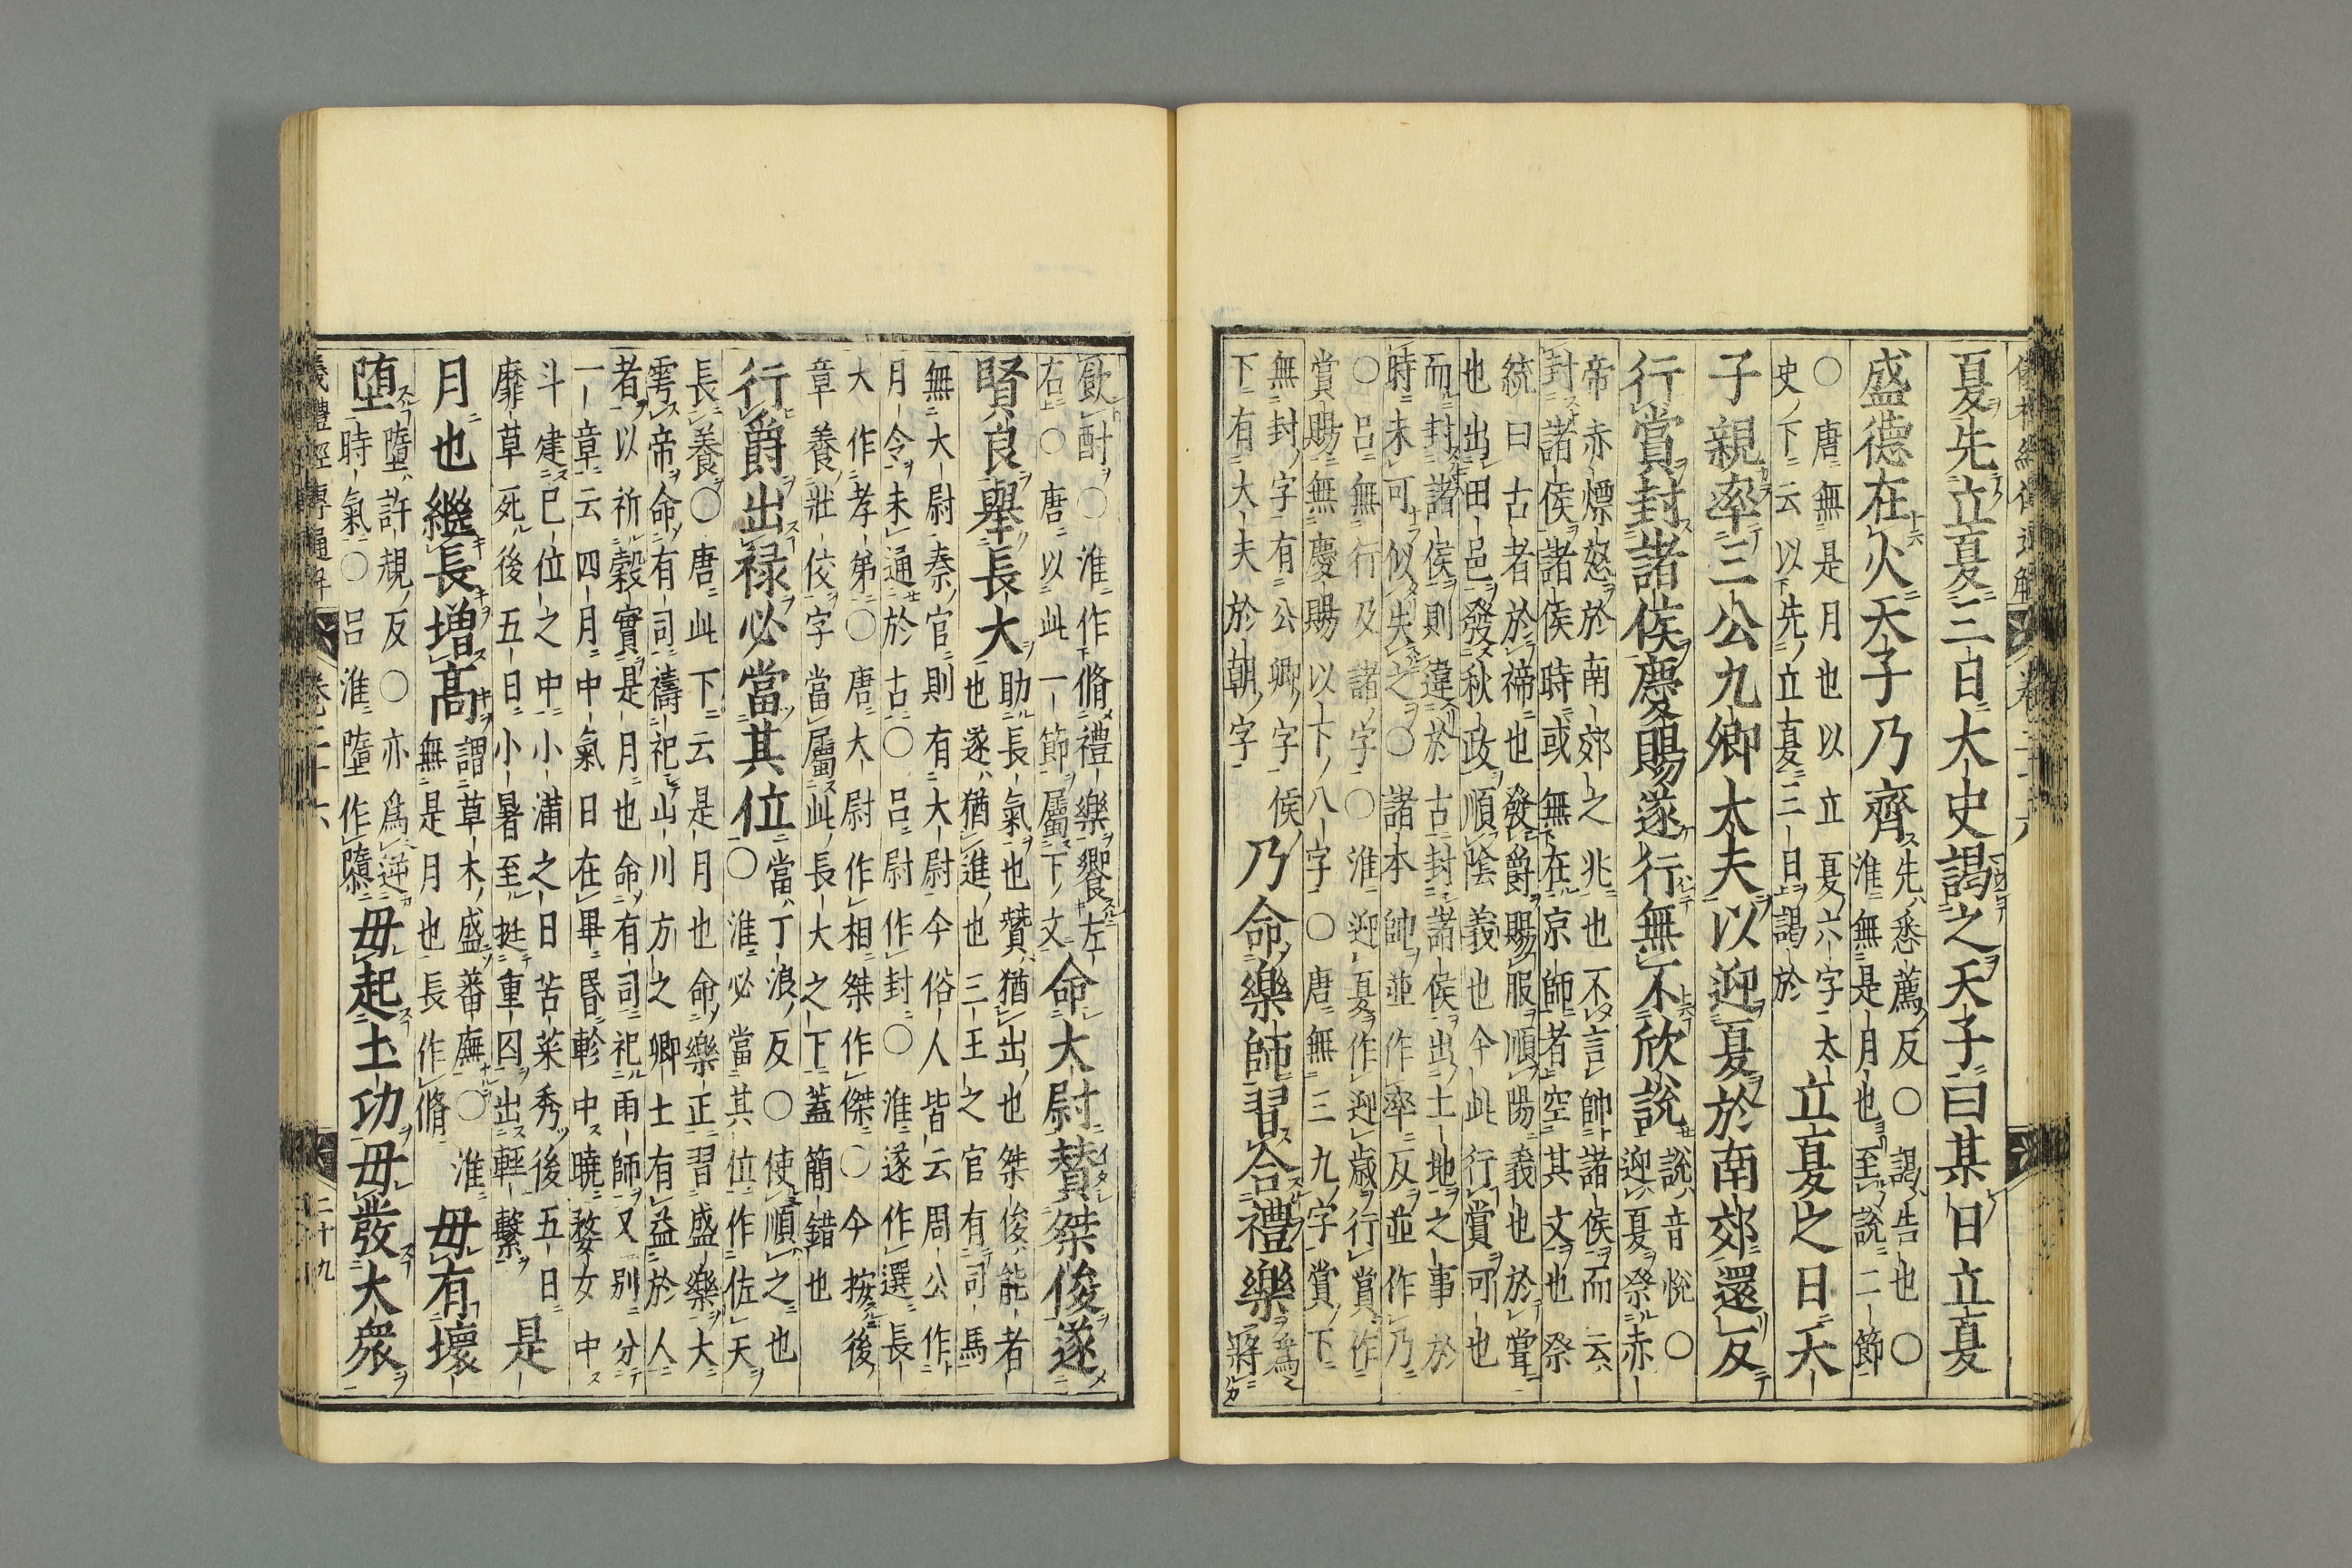 夏先立夏三日大史謁之天子曰某日立夏
盛德在火天子乃齊
先悉薦反○謁告也○
淮無是月也至說二節
○唐無是月也以立夏六字太
史下云以先立夏三日謁於
立夏之日天
子親率三公九卿大夫以迎夏於南郊還反
行賞封諸侯慶賜遂行無不欣說
說音悅○
迎夏祭赤
帝赤熛怒於南郊之兆也不言帥諸侯而云
封諸侯諸侯時或無在京師者空其文也祭
統曰古者於禘也發爵賜服順陽義也於嘗
也出田邑發秋政順陰義也今此行賞可也
而封諸侯則違於古封諸侯出土地之事於
時未可似失之○諸本帥並作率反並作乃
○呂無行及諸字○淮迎夏作迎歲行賞作
賞賜無慶賜以下八字○唐無三九字賞下
無封字有公卿字侯
下有大夫於朝字
乃命樂師習合禮樂
爲
將
飲酎○淮作脩禮樂饗左
右○唐以此一節屬下文
命大尉贊桀俊遂
賢良舉長大
助長氣也贊猶出也桀俊能者
也遂猶進也三王之官有司馬
無大尉秦官則有大尉今俗人皆云周公作
月令未通於古○呂尉作封○淮遂作選長
大作孝弟○唐大尉作相桀作傑○今按後
章養壯佼字當屬此長大之下蓋簡錯也
行爵出祿必當其位
當丁浪反○使順之也
○淮必當其位作佐天
長養○唐此下云是月也命樂正習盛樂大
雩帝命有司禱祀山川方之卿士有益於人
者以祈穀實是月也命有司祀雨師又別分
一章云四月中氣日在畢昏軫中曉婺女中
斗建巳位之中小滿之日苦菜秀後五日
靡草死後五日小暑至挺重囚出輕繫
是
月也繼長增高
謂草木盛蕃廡○淮
無是月也長作脩
毋有壞
墮
墮許規反○亦爲逆
時氣○呂淮墮作隳
毋起土功毋發大衆
儀禮經傳通解 卷二十六 二十九